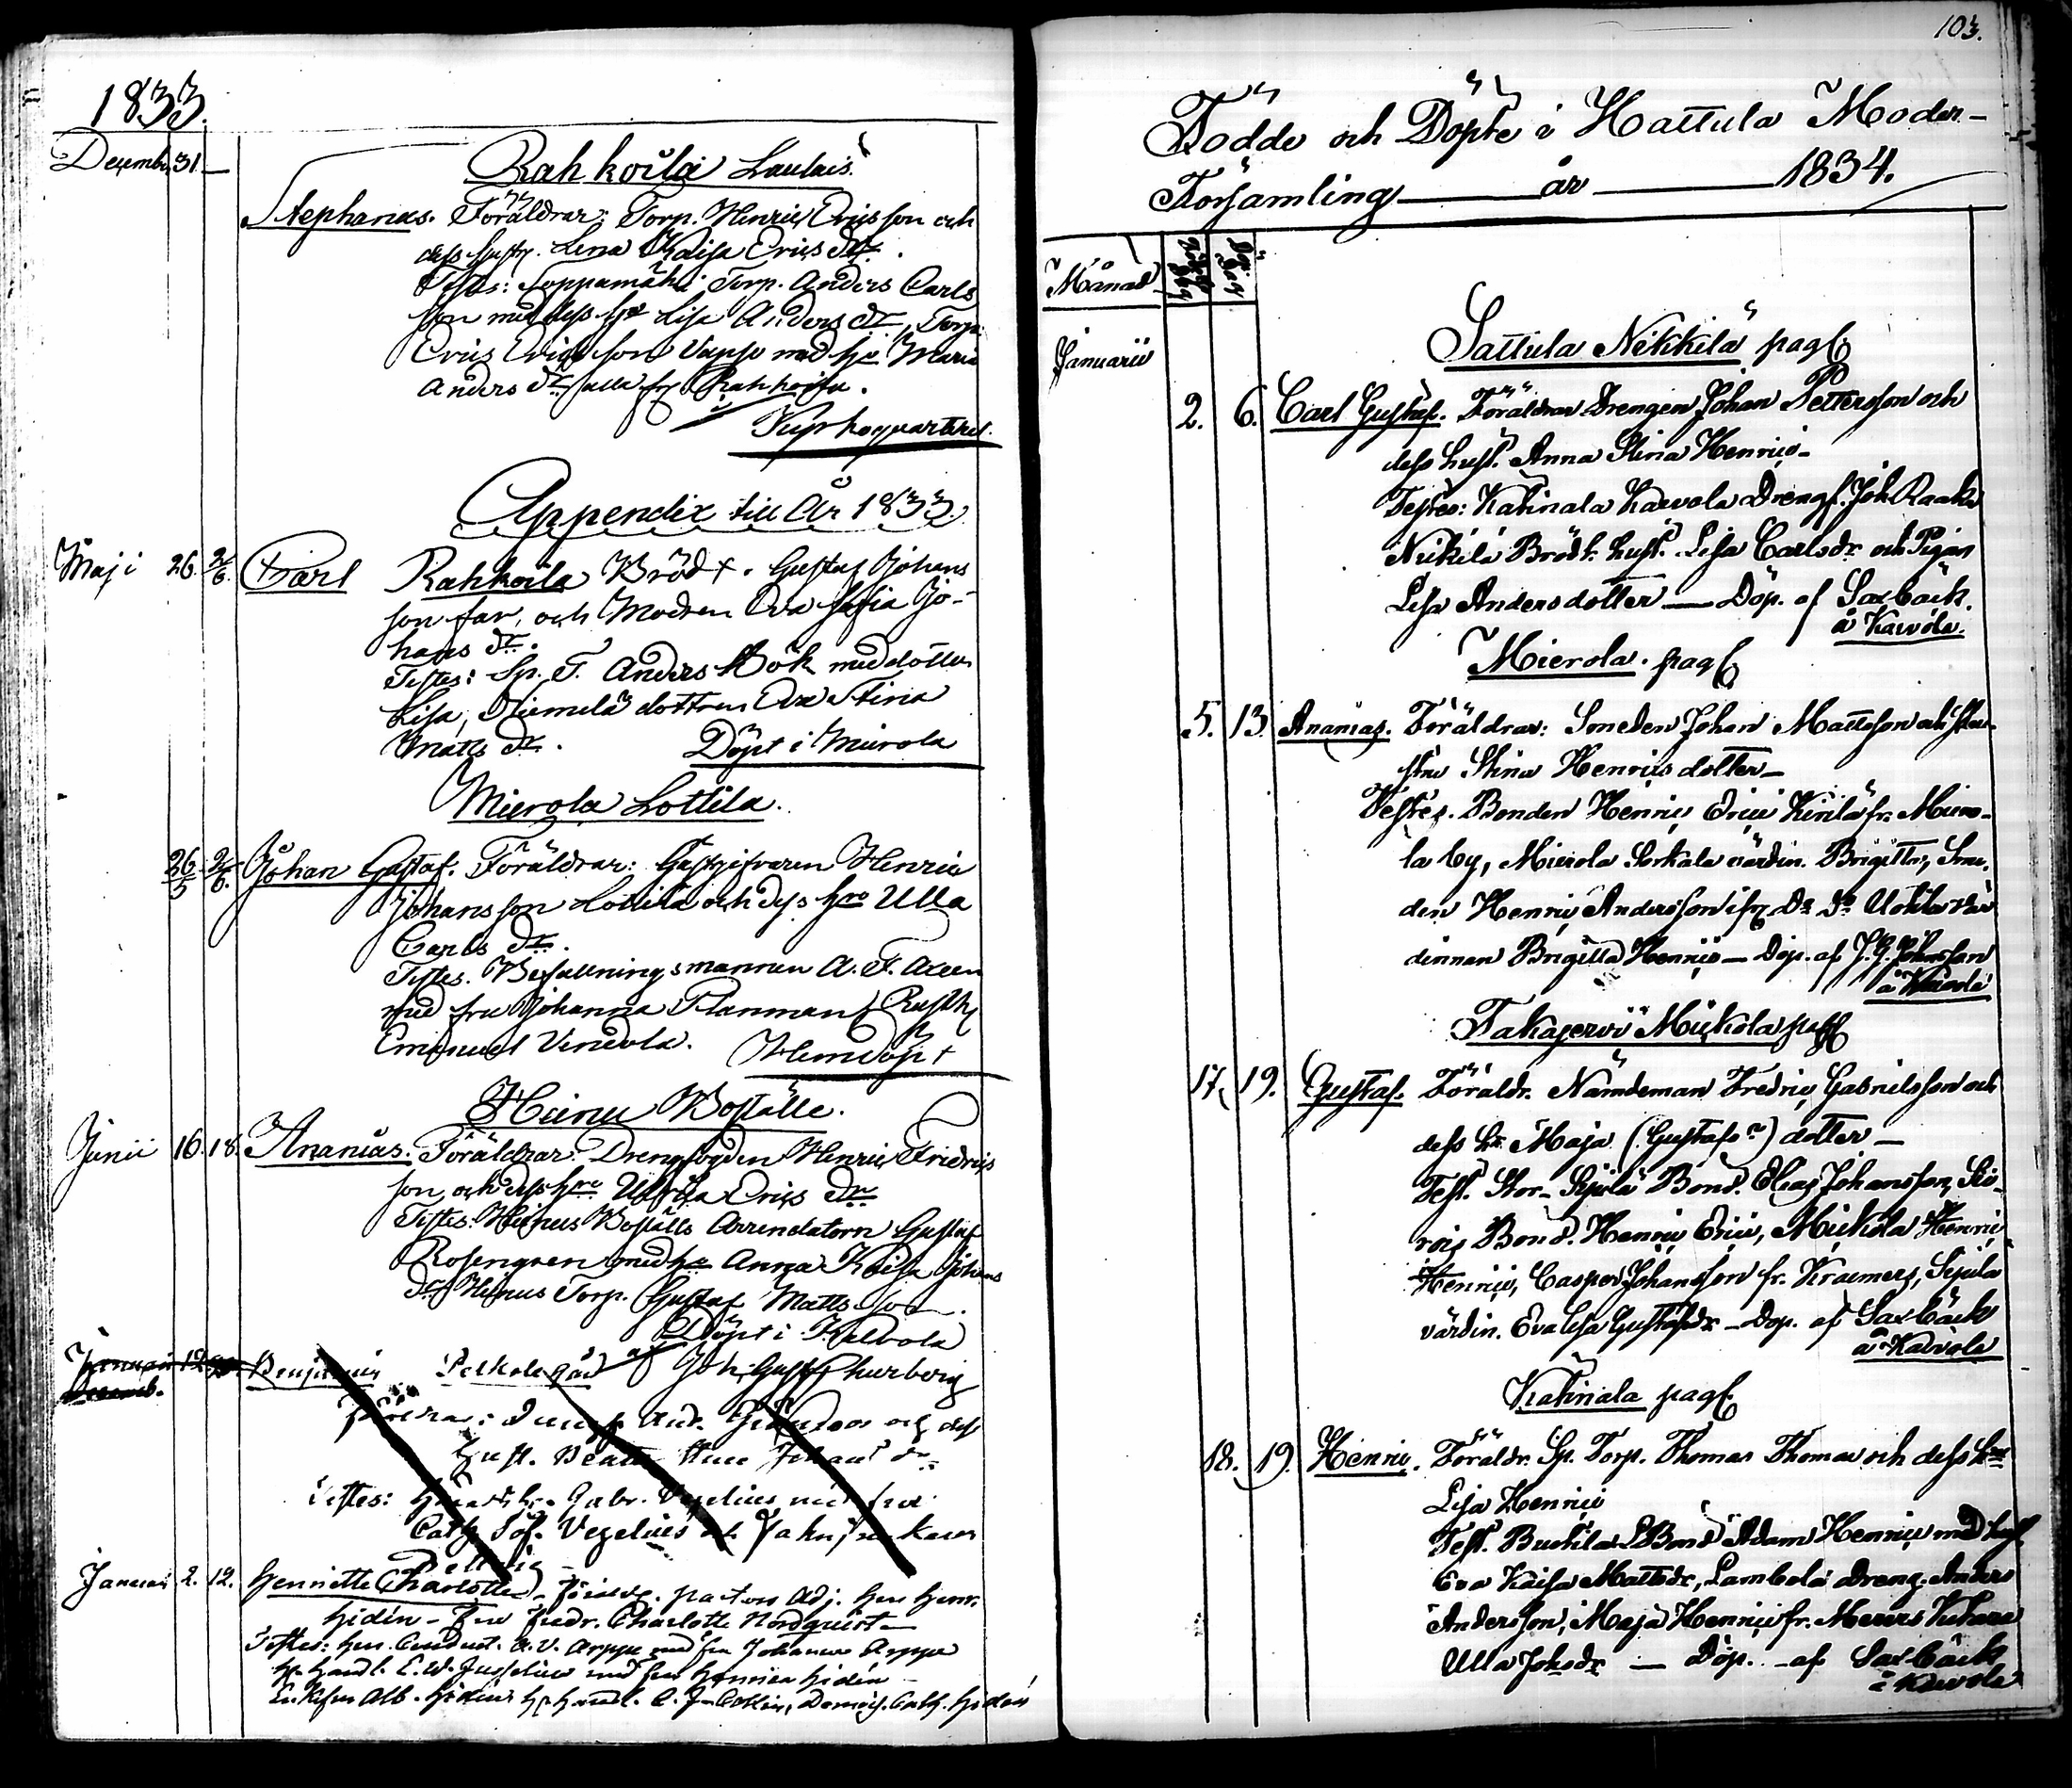 1833.
Decemb. 31. —
Rahkoila Laulais
Stephanus. Föräldrar: Torp. Henric Ericsson och
dess hustr. Lena Kaisa Erics dr.
Testes: Soppamäki Torp. Anders Carls
son med dess h. Lisa Anders dr, Torp.
Erics Ericsson med h. Maria
Anders dr, alla fr Rahkoila.
Appendix till År 1833.
Maji 26. 2/6. Carl Rahkoila Bröd †. Gustaf Johans
son far, och Modren Eva Sofia Jo-
hans dr.
Testes: Sp. T. Anders Bök med dotter
Lisa, Niemelä dottren Eva Stina
Matts dr. Döpt i Mierola
Mierola Lottila.
26/5 2/6. Johan Gustaf. Föräldrar: Gästgifvaren Henric
Johansson Lottila och dess hro Ulla
Carls dr.
Testes. Befallningsmannen A. F. Axeen
med fru Johanna Planman, Rusth
Emanuel Uncola. Hemdöpt
Heinu Boställe.
Junii 16. 18. Ananias. Föräldrar: Drengfogden Henric Fredrics
son, och dess hro Ulrika Erics dr.
Testes. Heinus Boställs Arrendatorn Gustaf
Rosengren med h. Anna Kaisa Johans
dr, Heinus Torp. Gustaf Matts son.
Döpt i Kalvola
af Joh. Gust. Thurberg
Januari 19
Decemb.
Benjamin Pelkola gård
Föräldrar: And. och dess
Hust. Beata Johans dr
Testes: Gabr. Vegelius med fru
Cath. Sof. Vegelius
Januari 2. 12. Henriette Charlotte. Föräldr. pastors Adj. Herr Henr.
Hidén – Fru Fredr. Charlotte Nordquist –
Testes: Herr Conduct. A. V. Arppe med fru Johanna Arppe
Hr Handl. E. W. Jusselius med fru Henrica Hidén
Alb. Hidén, Hr Handl. Demois. Cath. Hidén
103.
Födde och Döpte i Hattula Moder-
Församling — år — 1834.
Månad Född. Dag Döp. Dag
Januarii
Sattula Nikkilä pag.
2. 6. Carl Gustaf. Föräldrar Drengen Johan Pettersson och
dess hust. Anna Stina Henrics-
Testes: Katinala Kaewola Dreng. Joh. Raaka
Nickilä Brödt. hust. Lisa Carlsdr och Pigan
Lisa Andersdotter — Döp. af Saxbäck.
å Kaewola.
Mierola. pag.
5. 13. Ananias. Föräldrar: Smeden Johan Mattsson och Hu-
stru Stina Henrics dotter —
Testes. Bonden Henric Erici Kirilä fr. Miero-
la by, Mierola Sorkala värdin. Brigitta, Sme-
den Henric Andersson ifr. Do Do Uotila vär
dinnan Brigitta Henrics — Döp. af J. G. Johansson
å Kaewola
Takajerwi Mickola pag.
17. 19. Gustaf. Föräldr. Nämdeman Fredric Gabrielsson och
dess h. Maja (Gustafs?) dotter —
Test. Stor-Sipilä Bond. Elias Johansson, Ski-
rois Bond. Henric Erici, Mickola Henric
Henrici, Casper Johansson fr. Kraemers, Sipilä
värdin. Eva Lisa Gustafsdr — Döp. af Saxbäck
å Kaewola
Katinala pag.
18. 19. Henric. Föräldr. Sp. Torp. Thomas Thomae och dess h.
Lisa Henrici
Test. Buckila Bond Adam Henrici med hust.
Eva Kaisa Mattsdr, Lambola Dreng. Anders
Andersson, Maja Henrici fr. Mervis
Ulla Johsdr — Döp. af Saxbäck
å Kaewola